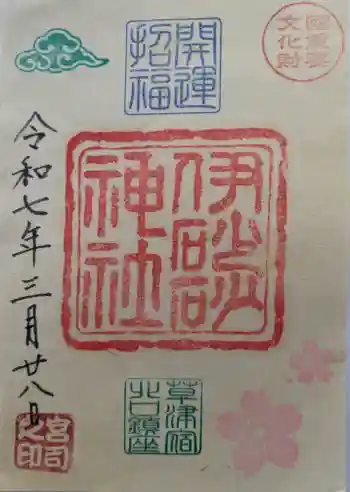 国重要
文化財
開運
招福
伊砂砂
神社
令和七年三月廿八日
草津宿
北口鎮座
宮司
之印